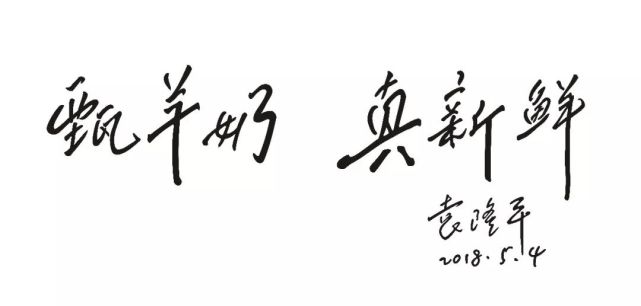 甄羊奶 真新鲜
袁隆平
2018.5.4